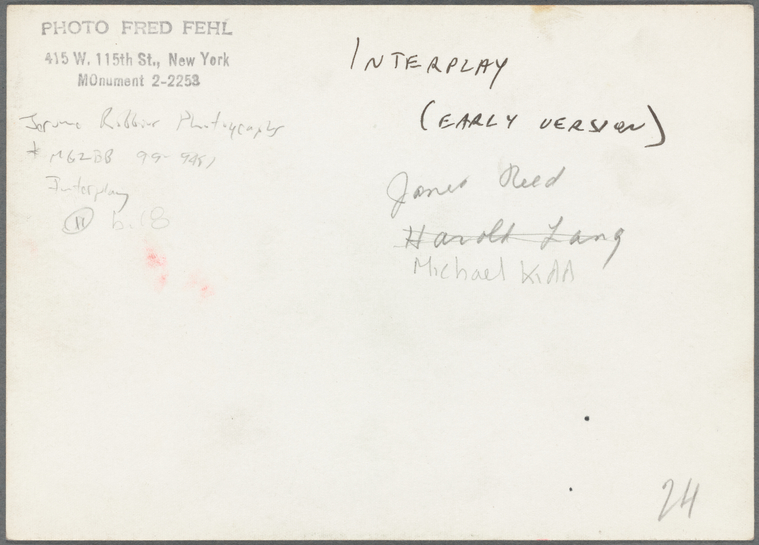 PHOTO FRED FEHL
415 W. 115th St., New York
MOnument 2-2253
Jerome Robbins Photographs
*MGZBB 99-
Interplay
11 b.18
INTERPLAY
(EARLY VERSION)
Janet Reed
Harold Lang
Michael Kidd
24